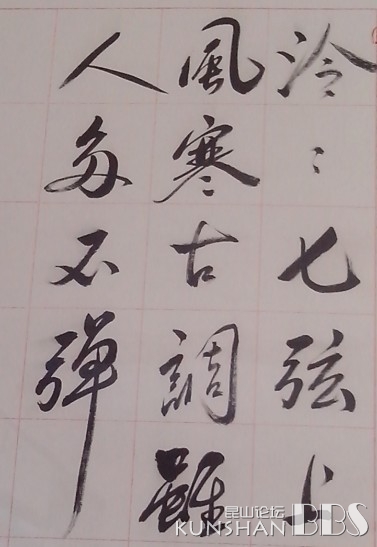 泠〻七弦上
風寒古調雖
人多不彈
昆山论坛
KUNSHAN BBS